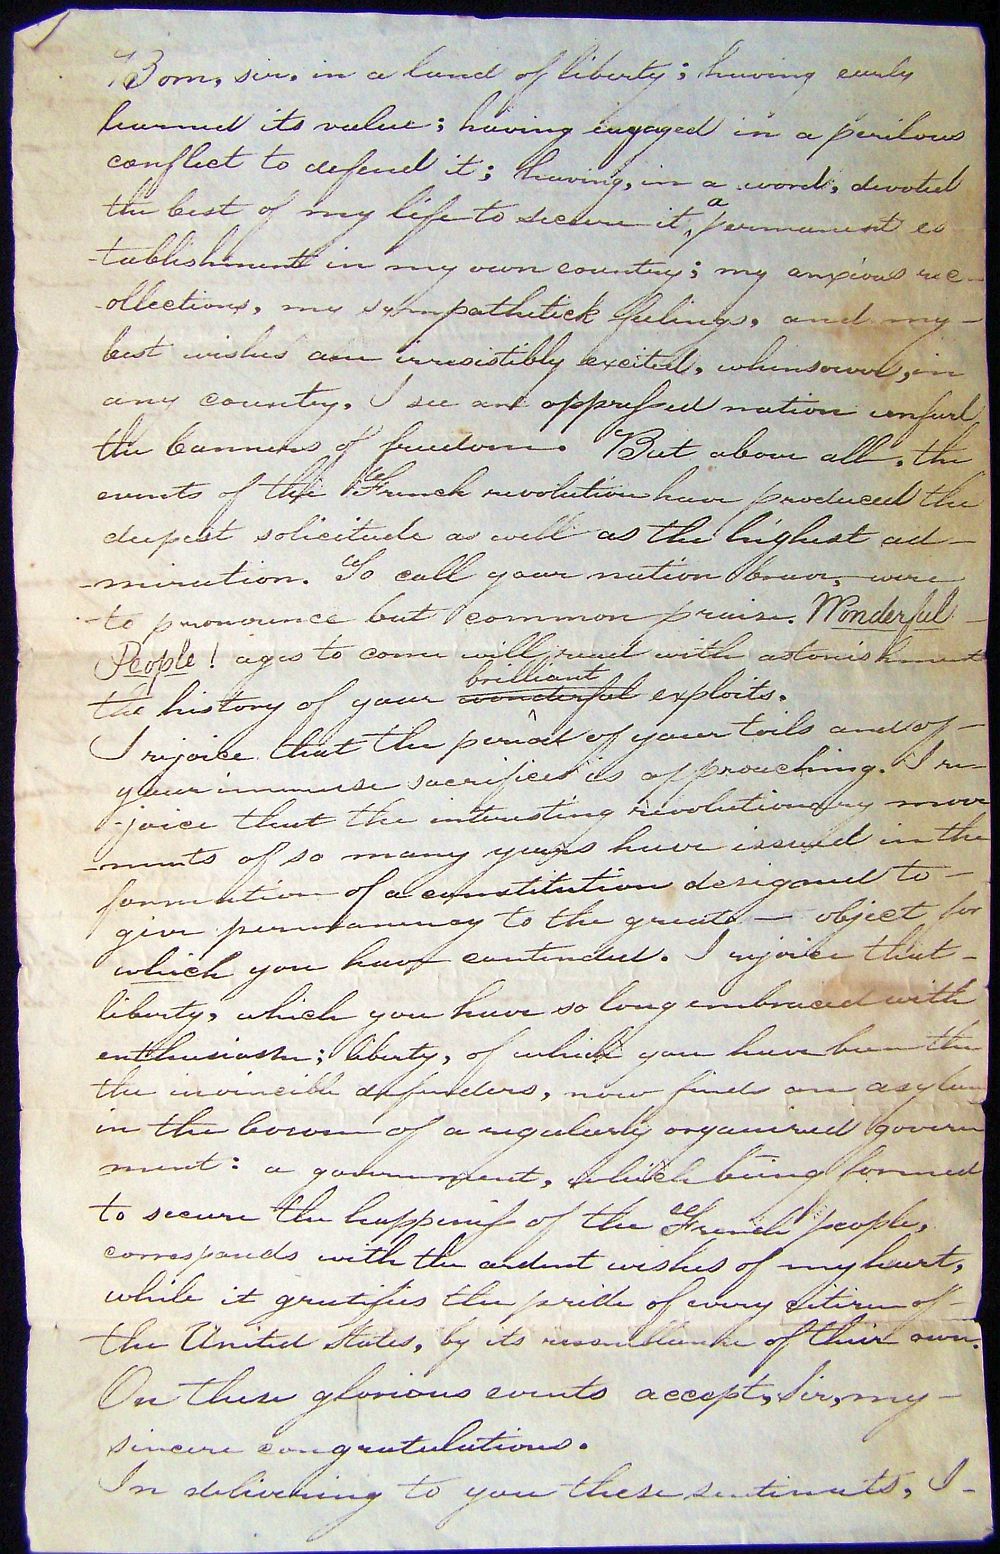 Born, sir, in a land of liberty; having early
learned its value; having engaged in a perilous
conflict to defend it; having, in a word, devoted
the best of my life to secure it, a permanent es
-tablishment in my own country; my anxious rec-
-ollections, my sympathetick feelings, and my-
best wishes are irresistibly excited, whensoever, in
any country, I see an oppressed nation unfurl
the banners of freedom. But above all, the
events of the French revolution have produced the
deepest solicitude as well as the highest ad-
-miration. To call your nation brave, were
-to pronounce but common praise. Wonderful-
People! ages to come will read with astonishment
the history of your wonderful brilliant exploits.
I rejoice that the period of your toils and of-
your immense sacrifices is approaching. I re-
-joice that the interesting revolutionary move
-ments of so many years have issued in the
formation of a constitution designed to-
give permanency to the great- object for
which you have contended. I rejoice that-
liberty, which you have so long embraced with
enthusiasm; liberty, of which you have been the
the invincible defenders, now finds an asylum
in the bosom of a regularly organized govern
ment: a government, which being formed
to secure the happiness of the French people,
corresponds with the ardent wishes of my heart,
while it gratifies the pride of every citizen of-
the United States, by its resemblance of their own.
On these glorious events accept, Sir, my-
sincere congratulations.
In delivering to you these sentiments, I-